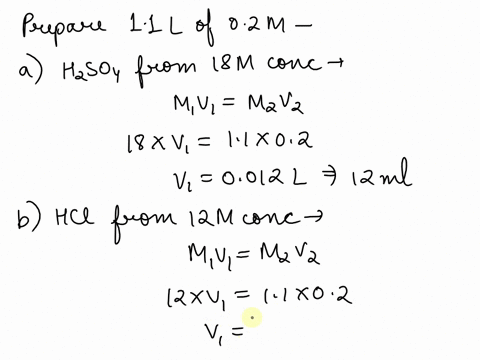 Prepare 1.1 L of 0.2 M —
a) H₂SO₄ from 18M conc →
M₁V₁ = M₂V₂
18 × V₁ = 1.1 × 0.2
V₁ = 0.012 L ⇒ 12 ml
b) HCl from 12M conc →
M₁V₁ = M₂V₂
12 × V₁ = 1.1 × 0.2
V₁ =